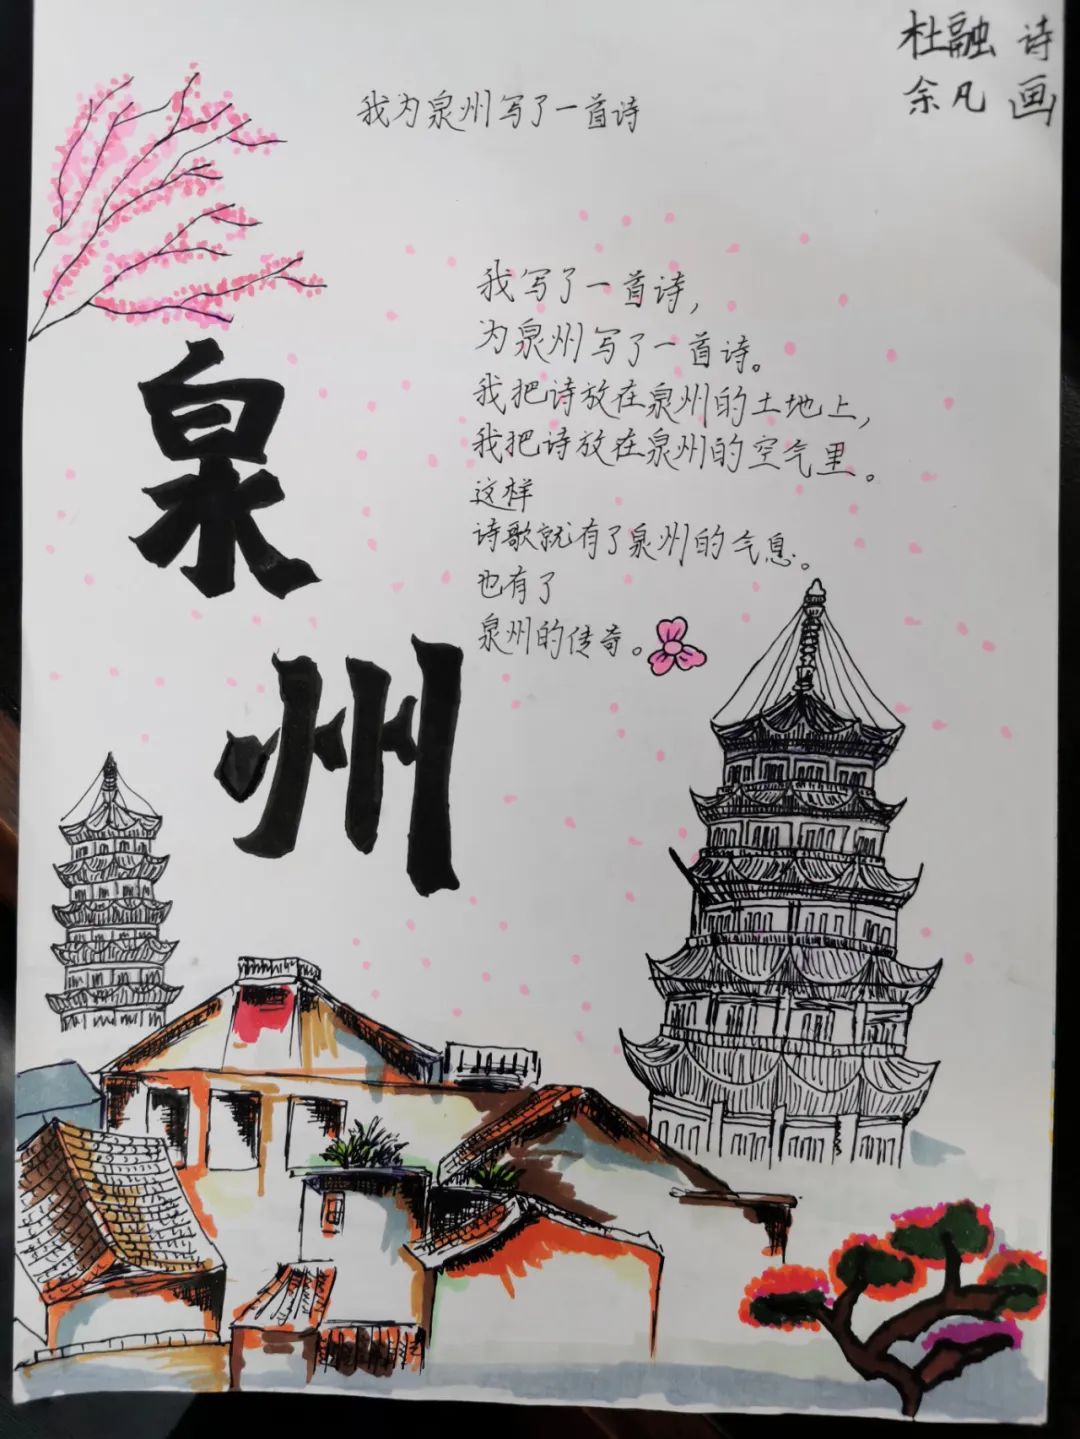 杜融 诗
余凡 画
我为泉州写了一首诗
我写了一首诗，
为泉州写了一首诗。
我把诗放在泉州的土地上，
我把诗放在泉州的空气里。
这样
诗歌就有了泉州的气息。
也有了
泉州的传奇。
泉
州